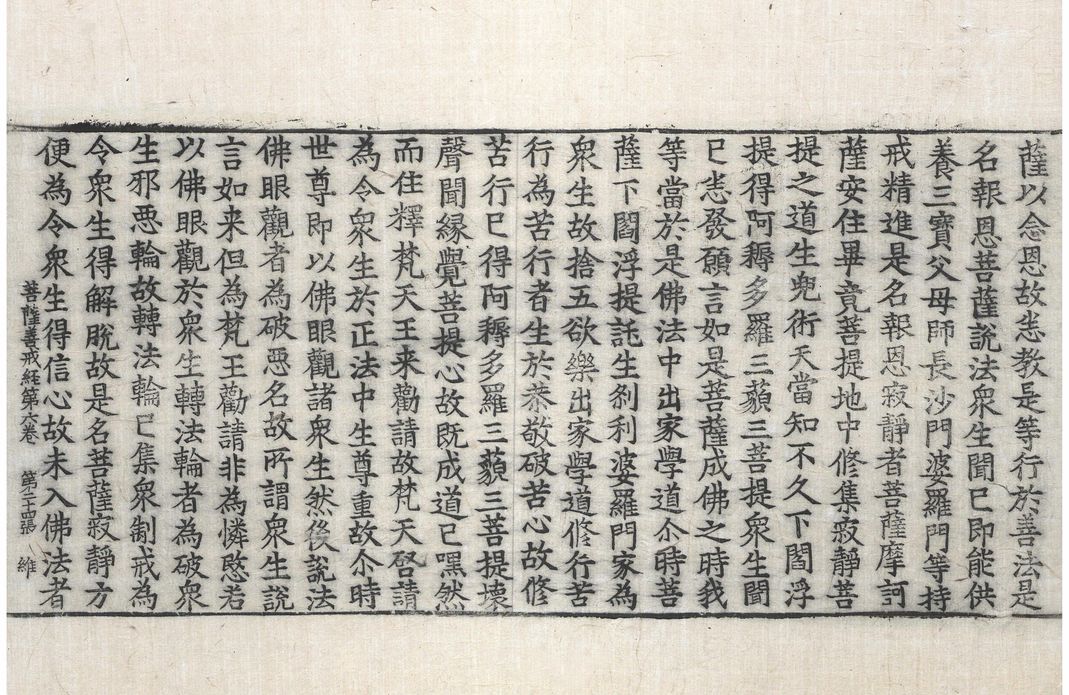 薩以念恩故恙教是等行於善法是
名報恩菩薩説法衆生聞已即能供
養三寶父母師長沙門婆羅門等持
戒精進是名報恩寂靜者菩薩摩訶
薩安住畢竟菩提地中修集寂靜菩
提之道生兜術天當知不久下閻浮
提得阿耨多羅三藐三菩提衆生聞
已恙發願言如是菩薩成佛之時我
等當於是佛法中出家學道尒時菩
薩下閻浮提託生刹利婆羅門家為
衆生故捨五欲樂出家學道修行苦
行為苦行者生於恭敬破苦心故修
苦行已得阿耨多羅三藐三菩提壞
聲聞縁覺菩提心故既成道已嘿然
而住釋梵天王来勸請故梵天啓請
為令衆生於正法中生尊重故尒時
世尊即以佛眼觀諸衆生然後説法
佛眼觀者為破惡名故所謂衆生說
言如来但為梵王勸請非為憐愍若
以佛眼觀於衆生轉法輪者為破衆
生邪惡輪故轉法輪已集衆制戒為
令衆生得解脫故是名菩薩寂靜方
便為令衆生得信心故未入佛法者
菩薩善戒経第六卷 第二十四張 維